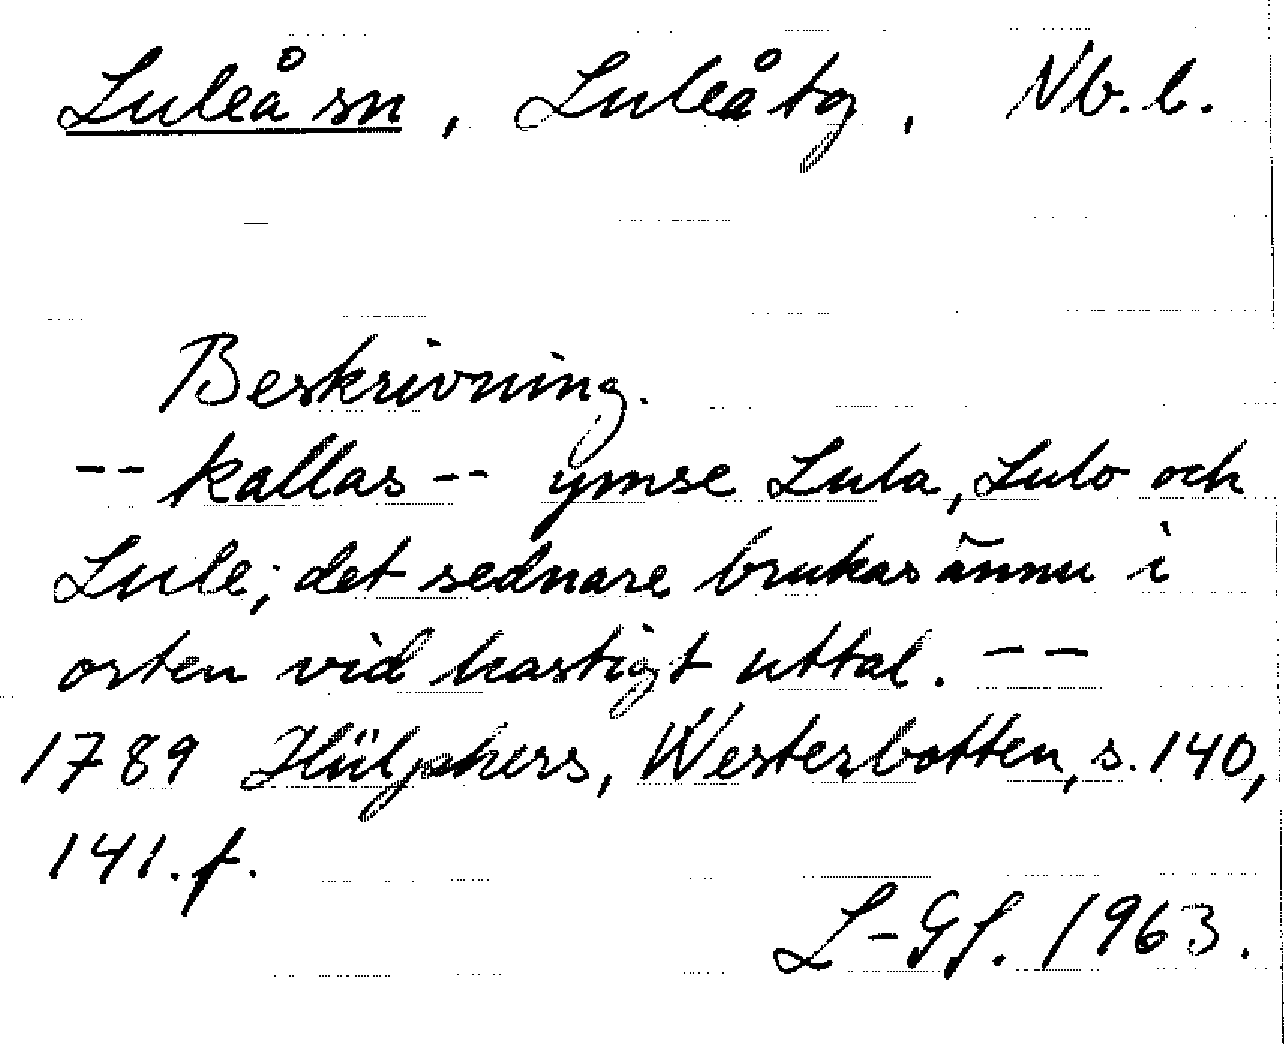 Luleå sn, Luleå tg, Nb. l.
Beskrivning.
-- kallas -- ymse Lula, Lulo och
Lule; det sednare brukas ännu i
orten vid hastigt uttal. --
1789 Hülphers, Westerbotten, s. 140,
141. f.
L-GS. 1963.